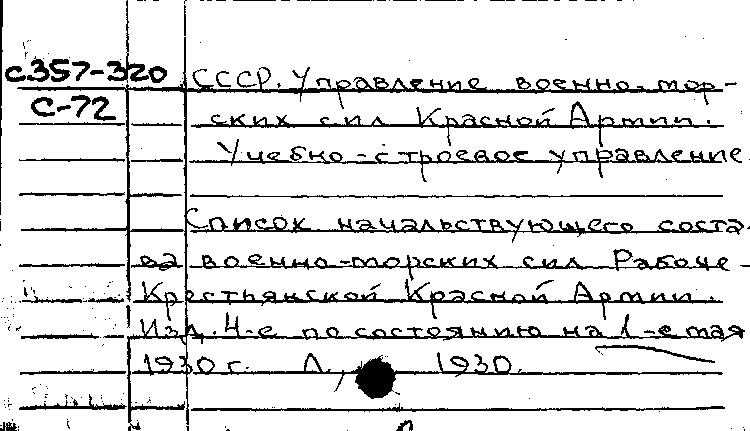 с.357-320 СССР. Управление военно-мор-
С-72 ских сил Красной Армии.
Учебно-строевое управление
Список начальствующего соста-
ва военно-морских сил Рабоче-
Крестьянской Красной Армии.
Изд. 4-е по состоянию на 1-е мая
1930 г. Л., 1930.